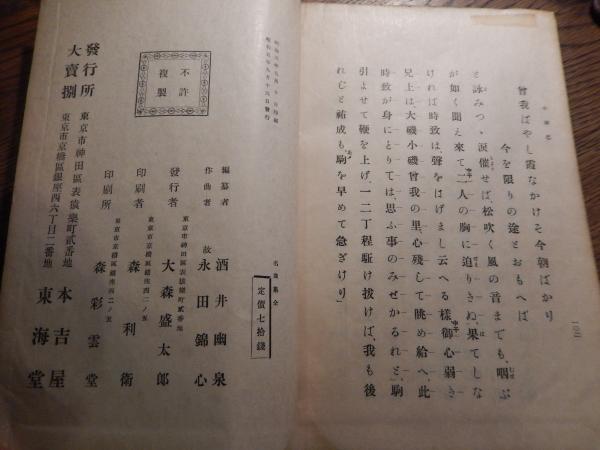 曾我ばやし霞なかけそ今朝ばかり
今を限りの途とおもへば
と詠みつゝ淚催せば、松吹く風の音までも、咽ぶ
が如く聞え來て二人の胸に迫りきぬ、果てしな
ければ時致は、聲をはげまし云へる樣御心弱き
兄上は、大磯小磯曾我の里、心殘して眺め給へ、此
時致が身にとりては、思ふ事のみせかるれと、駒
引よせて鞭を上げ、一二丁程駈け拔けば、我も後
れむと祐成も、駒を早めて急ぎけり」
定價七拾錢
編纂者 酒井幽泉
作曲者 故 永田錦心
東京市神田區表猿樂町貳番地
發行者 大森盛太郎
東京市京橋區銀座西六ノ五
印刷者 森利衛
東京市京橋區銀座西六ノ五
印刷所 森彩雲堂
不許
複製
發行所 東京市神田區表猿樂町貳番地 本吉屋
大賣捌 東京市京橋區銀座西六丁目二番地 東海堂